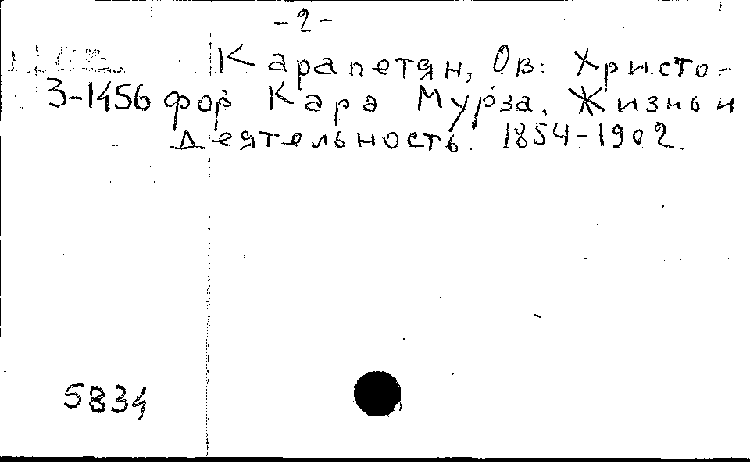 -2-
Карапетян, Ов: Христо-
3-1456 фор Кара Мурза. Жизнь и
деятельность. 1854-1902.
5834